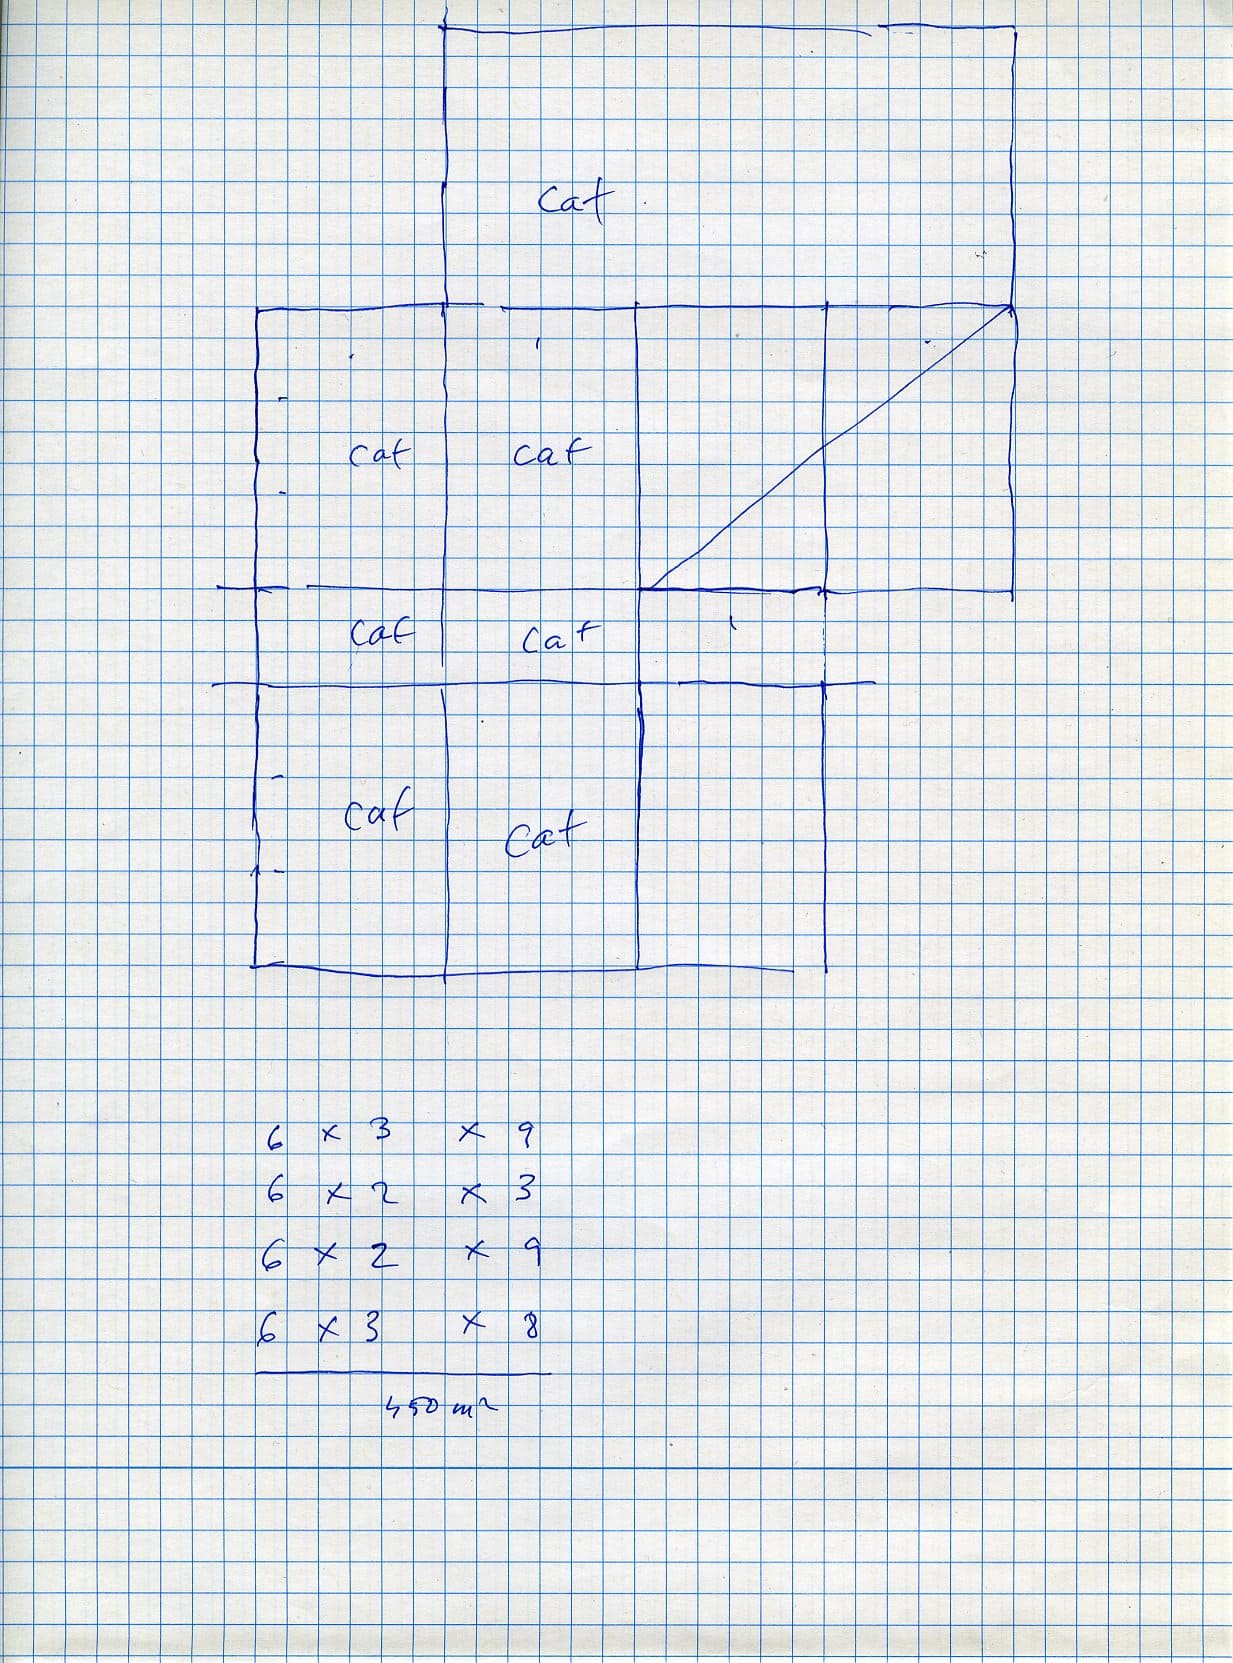 cat
cat cat
cat cat
cat cat
6 x 3 x 9
6 x 2 x 3
6 x 2 x 9
6 x 3 x 8
450 m²